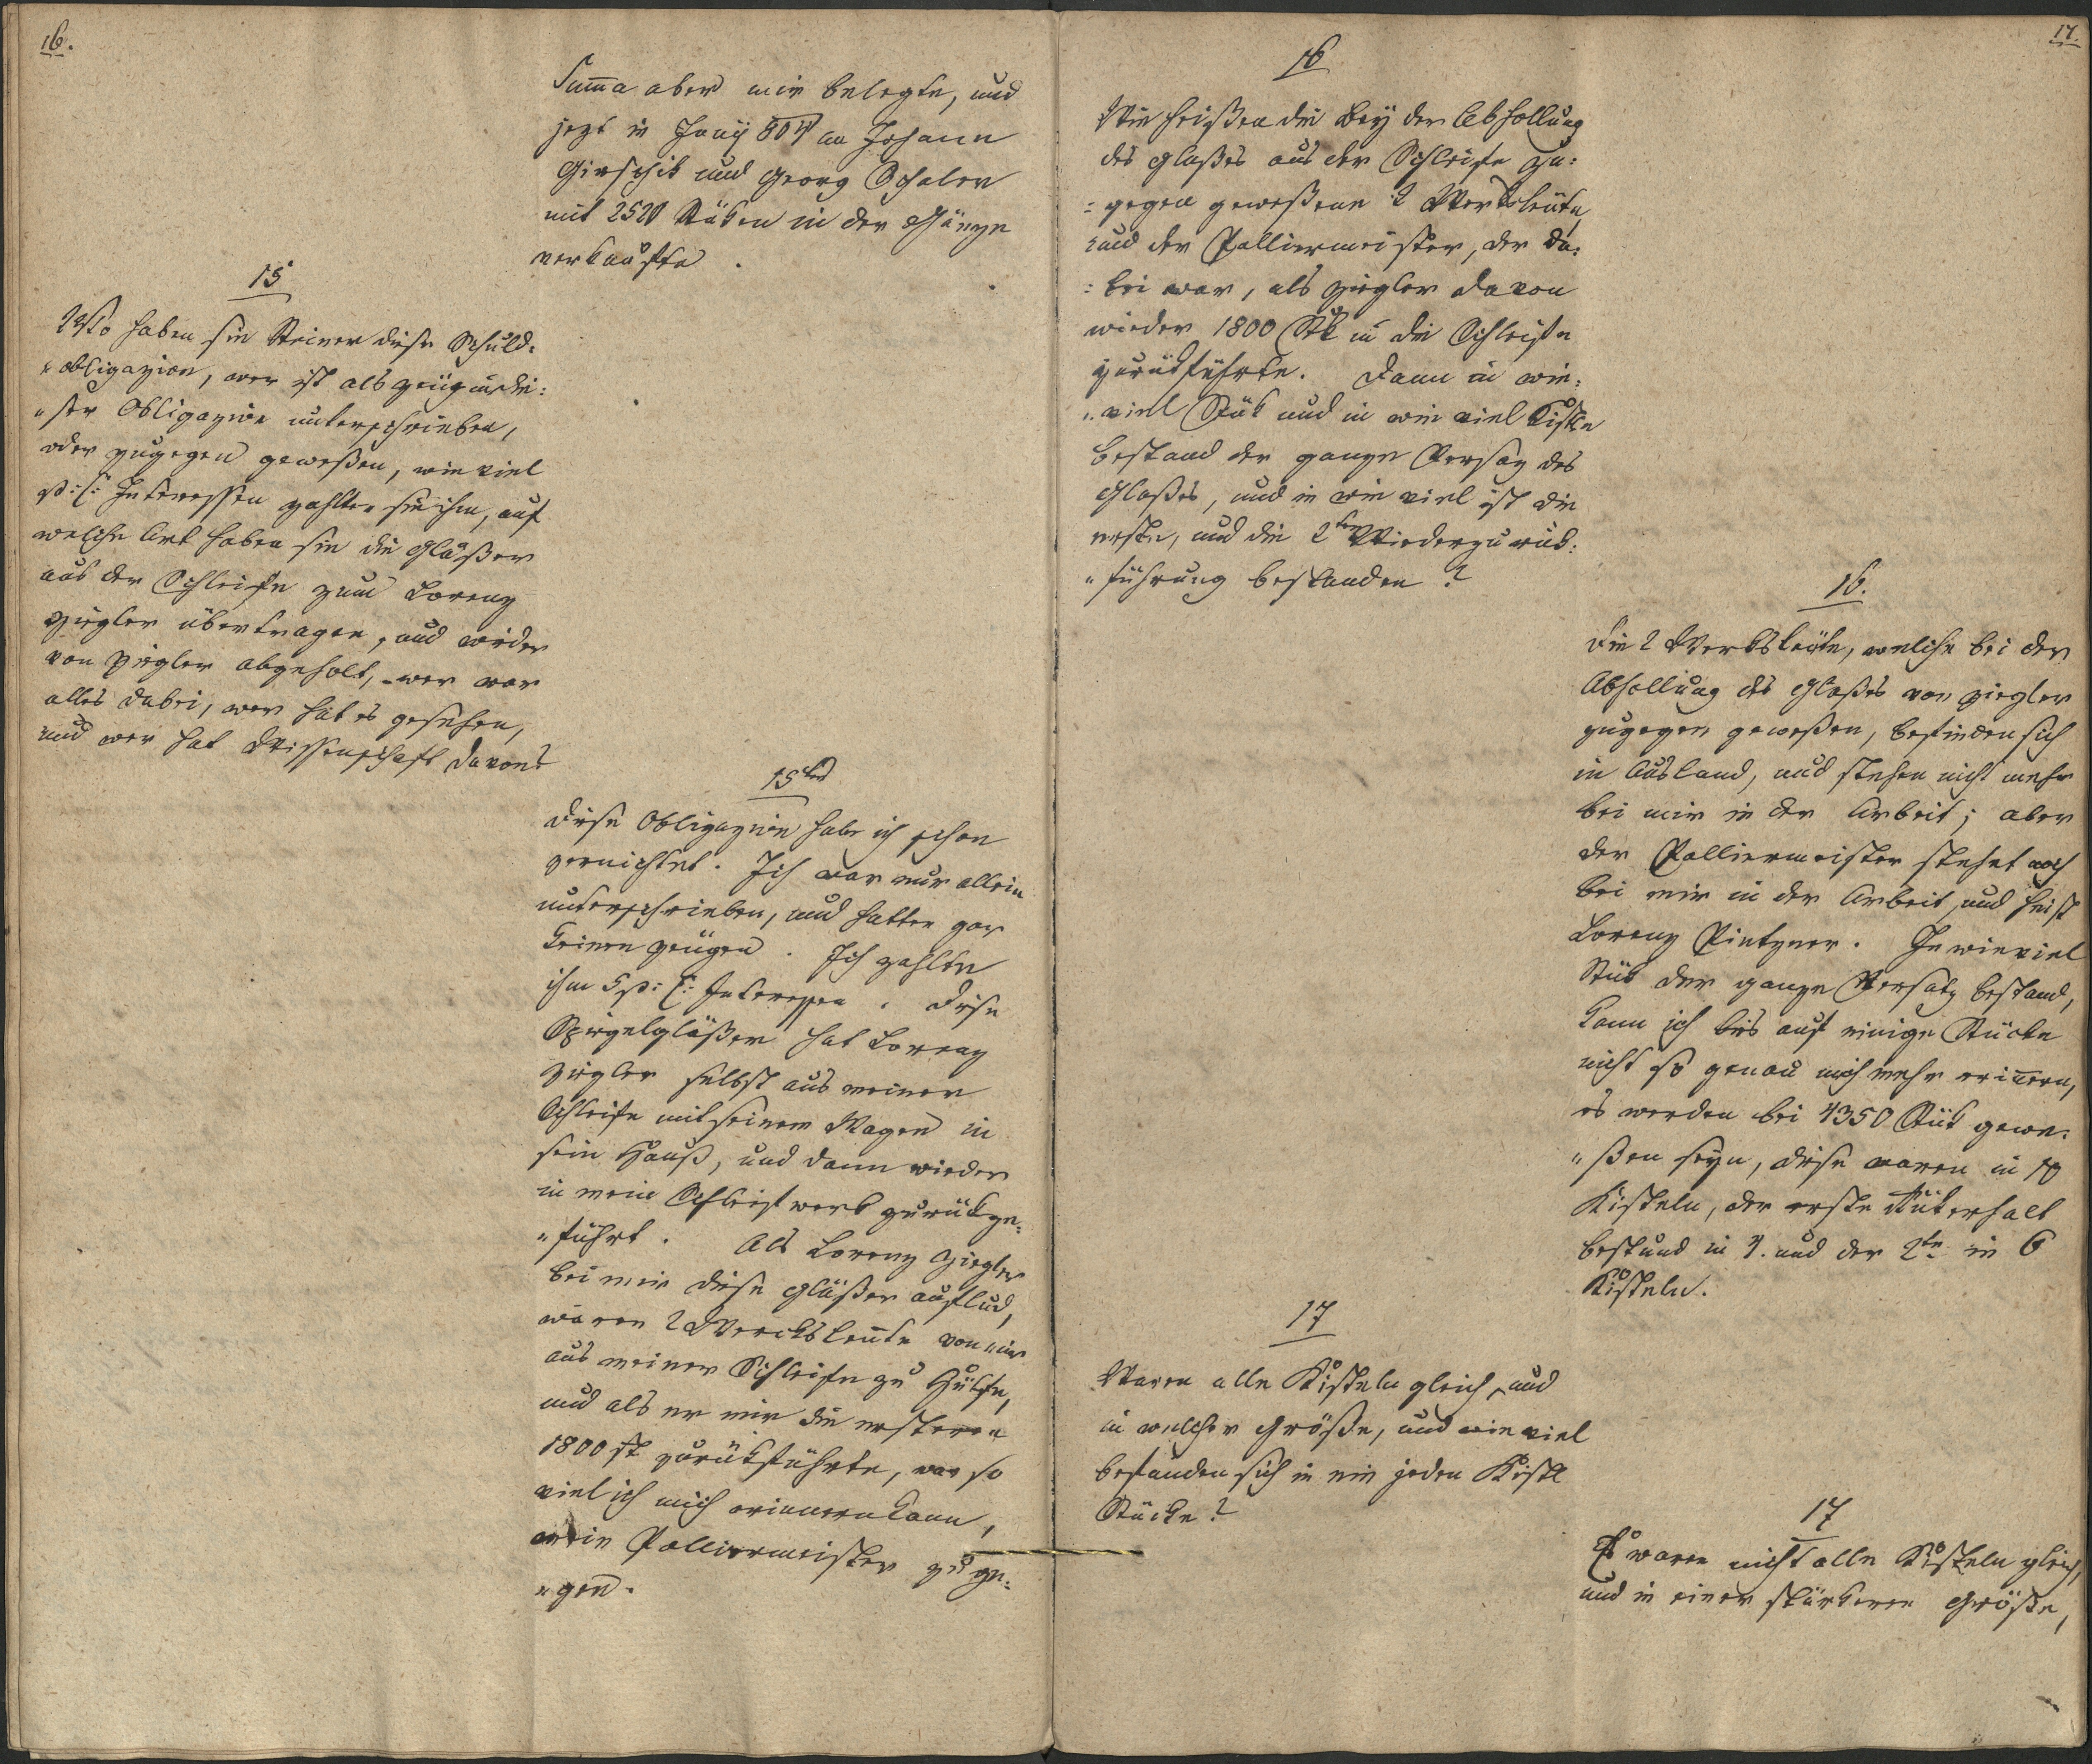 16.
Summa aber mir belegte, und
jezt in Juny 804 an Johann
Girschik und Georg Schaler
mit 2520 Stüken in der Gänze
verkaufte.
15
Wo haben sie Steiner diese Schuld-
obligazion, wer ist als Zeüg in die-
ser Obligazion unterschrieben,
oder zugegen geweßen, wie viel
p: C: Interessen zahlten sie ihm, auf
welche Art haben sie die Gläßer
aus der Schleife zum Lorenz
Ziegler übertragen, und wieder
von Ziegler abgeholt, wer war
alles dabei, wer hat es gesehen,
und wer hat Wissenschaft davon?
15tens
Diese Obligazion habe ich schon
vernichtet. Ich war nur allein
unterschrieben, und hatten gar
keinen Zeügen. Ich zahlte
ihm 5 p: C: Interessen. Diese
Spiegelgläßer hat Lorenz
Ziegler selbst aus meiner
Schleife mit seinem Wagen in
sein Hauß, und dann wieder
in mein Schleifwerk zurückge-
führt. Als Lorenz Ziegler
bei mir diese Gläßer auflud,
waren 2 Werksleute von mir
aus meiner Schleife zu Hülfe,
und als er mir die ersteren
1800 st zurükführte, war so
viel ich mich erinnern kann,
mein Polliermeister zuge-
gen.
17.
16
Wie heißen die bey der Abhollung
des Glaßes aus der Schleife zu-
gegen geweßene 2 Werksleüte,
und der Polliermeister, der da-
bei war, als Ziegler davon
wieder 1800 Stk in die Schleife
zurükführte. Dann in wie-
viel Stük und in wie viel Kistln
bestand der ganze Versaz des
Glaßes, und in wie viel ist die
erste, und die 2te Wiederzurük-
führung bestanden?
16.
Die 2 Werksleüte, welche bei der
Abhollung des Glaßes von Ziegler
zugegen geweßen, befinden sich
in Ausland, und stehen nicht mehr
bei mir in der Arbeit; aber
der Polliermeister stehet noch
bei mir in der Arbeit, und heist
Lorenz Pintzner. In wie viel
Stük der ganze Versatz bestand,
kann ich bis auf einige Stücke
nicht so genau mich mehr erinern,
es werden bei 4350 Stük gewe-
ßen seyn, diese waren in 10
Kisteln, der erste Rükerhalt
bestund in 4. und der 2te in 6
Kisteln.
17
Waren alle Kisteln gleich, und
in welcher Größe, und wie viel
befanden sich in ein jeden Kistl
Stücke?
17
Es waren nicht alle Kisteln gleich,
und in einer stärkeren Größe,